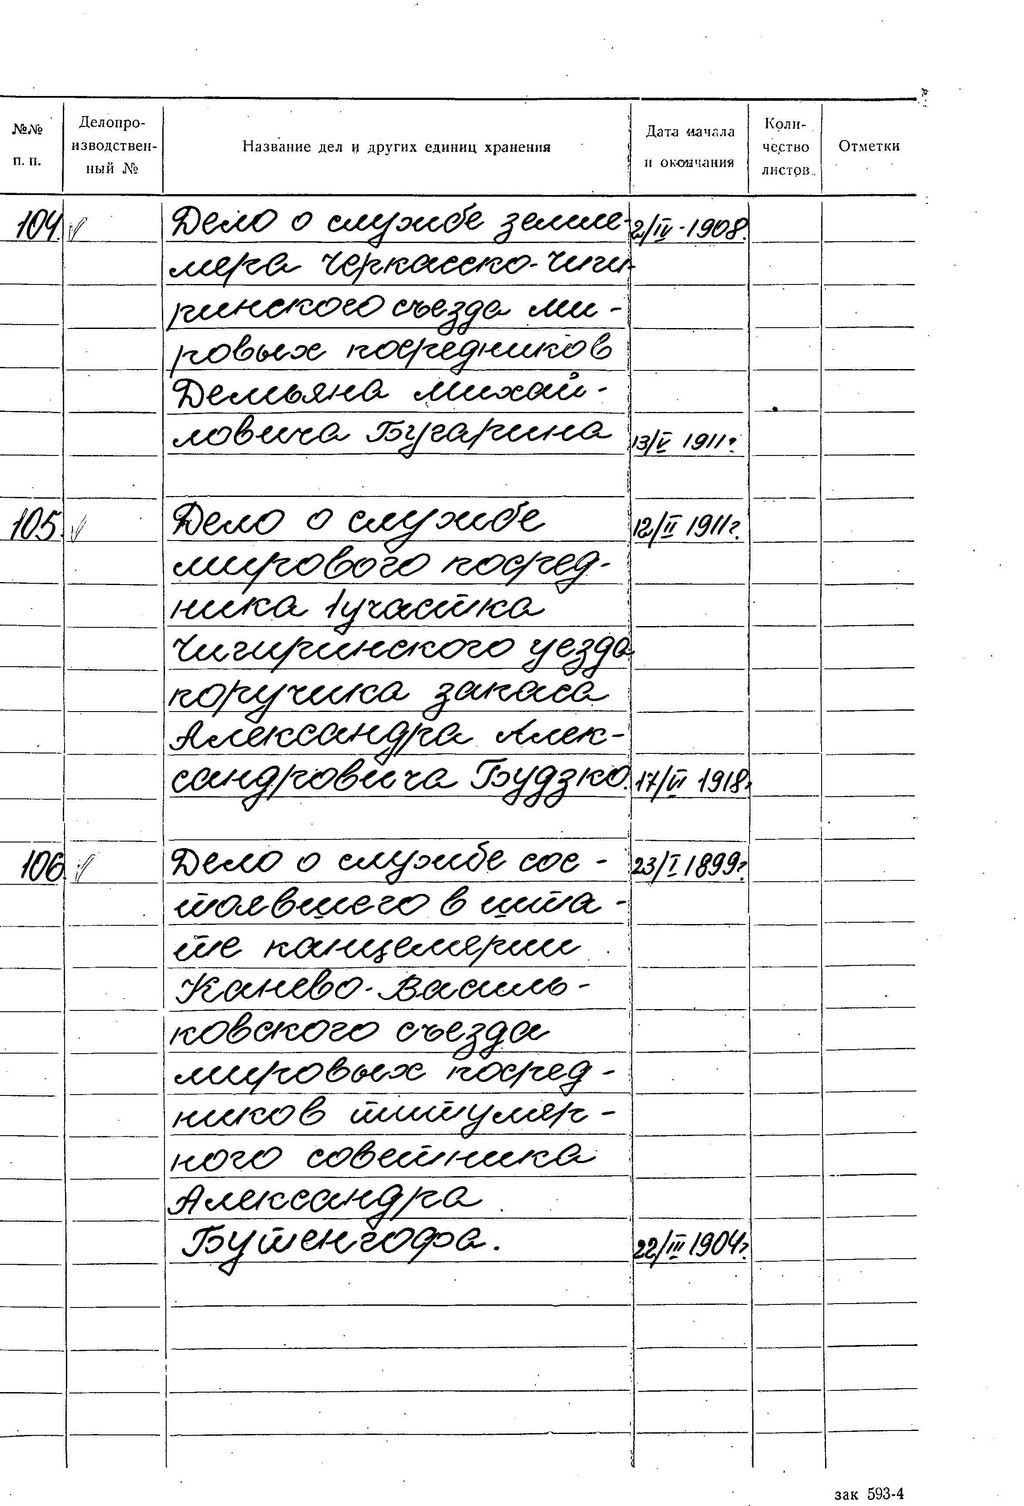 №№ п. п. Делопроизводственный № Название дел и других единиц хранения Дата начала и окончания Количество листов Отметки
104. Дело о службе землe- 2/IV-1908.
мера Черкасско-Чиги-
ринского съезда ми-
ровых посредников
Демьяна Михай-
ловича Бугарина 13/V 1911г.
105. Дело о службе 12/II 1911г.
мирового посред-
ника 1 участка
Чигиринского уезда
поручика запаса
Александра Алек-
сандровича Будзко. 17/VI 1918г.
106 Дело о службе сос- 23/I 1899г.
тоявшего в шта-
те канцелярии
Канево-Василь-
ковского съезда
мировых посред-
ников титуляр-
ного советника
Александра
Бутенгофа. 22/III 1904г.
зак 593-4